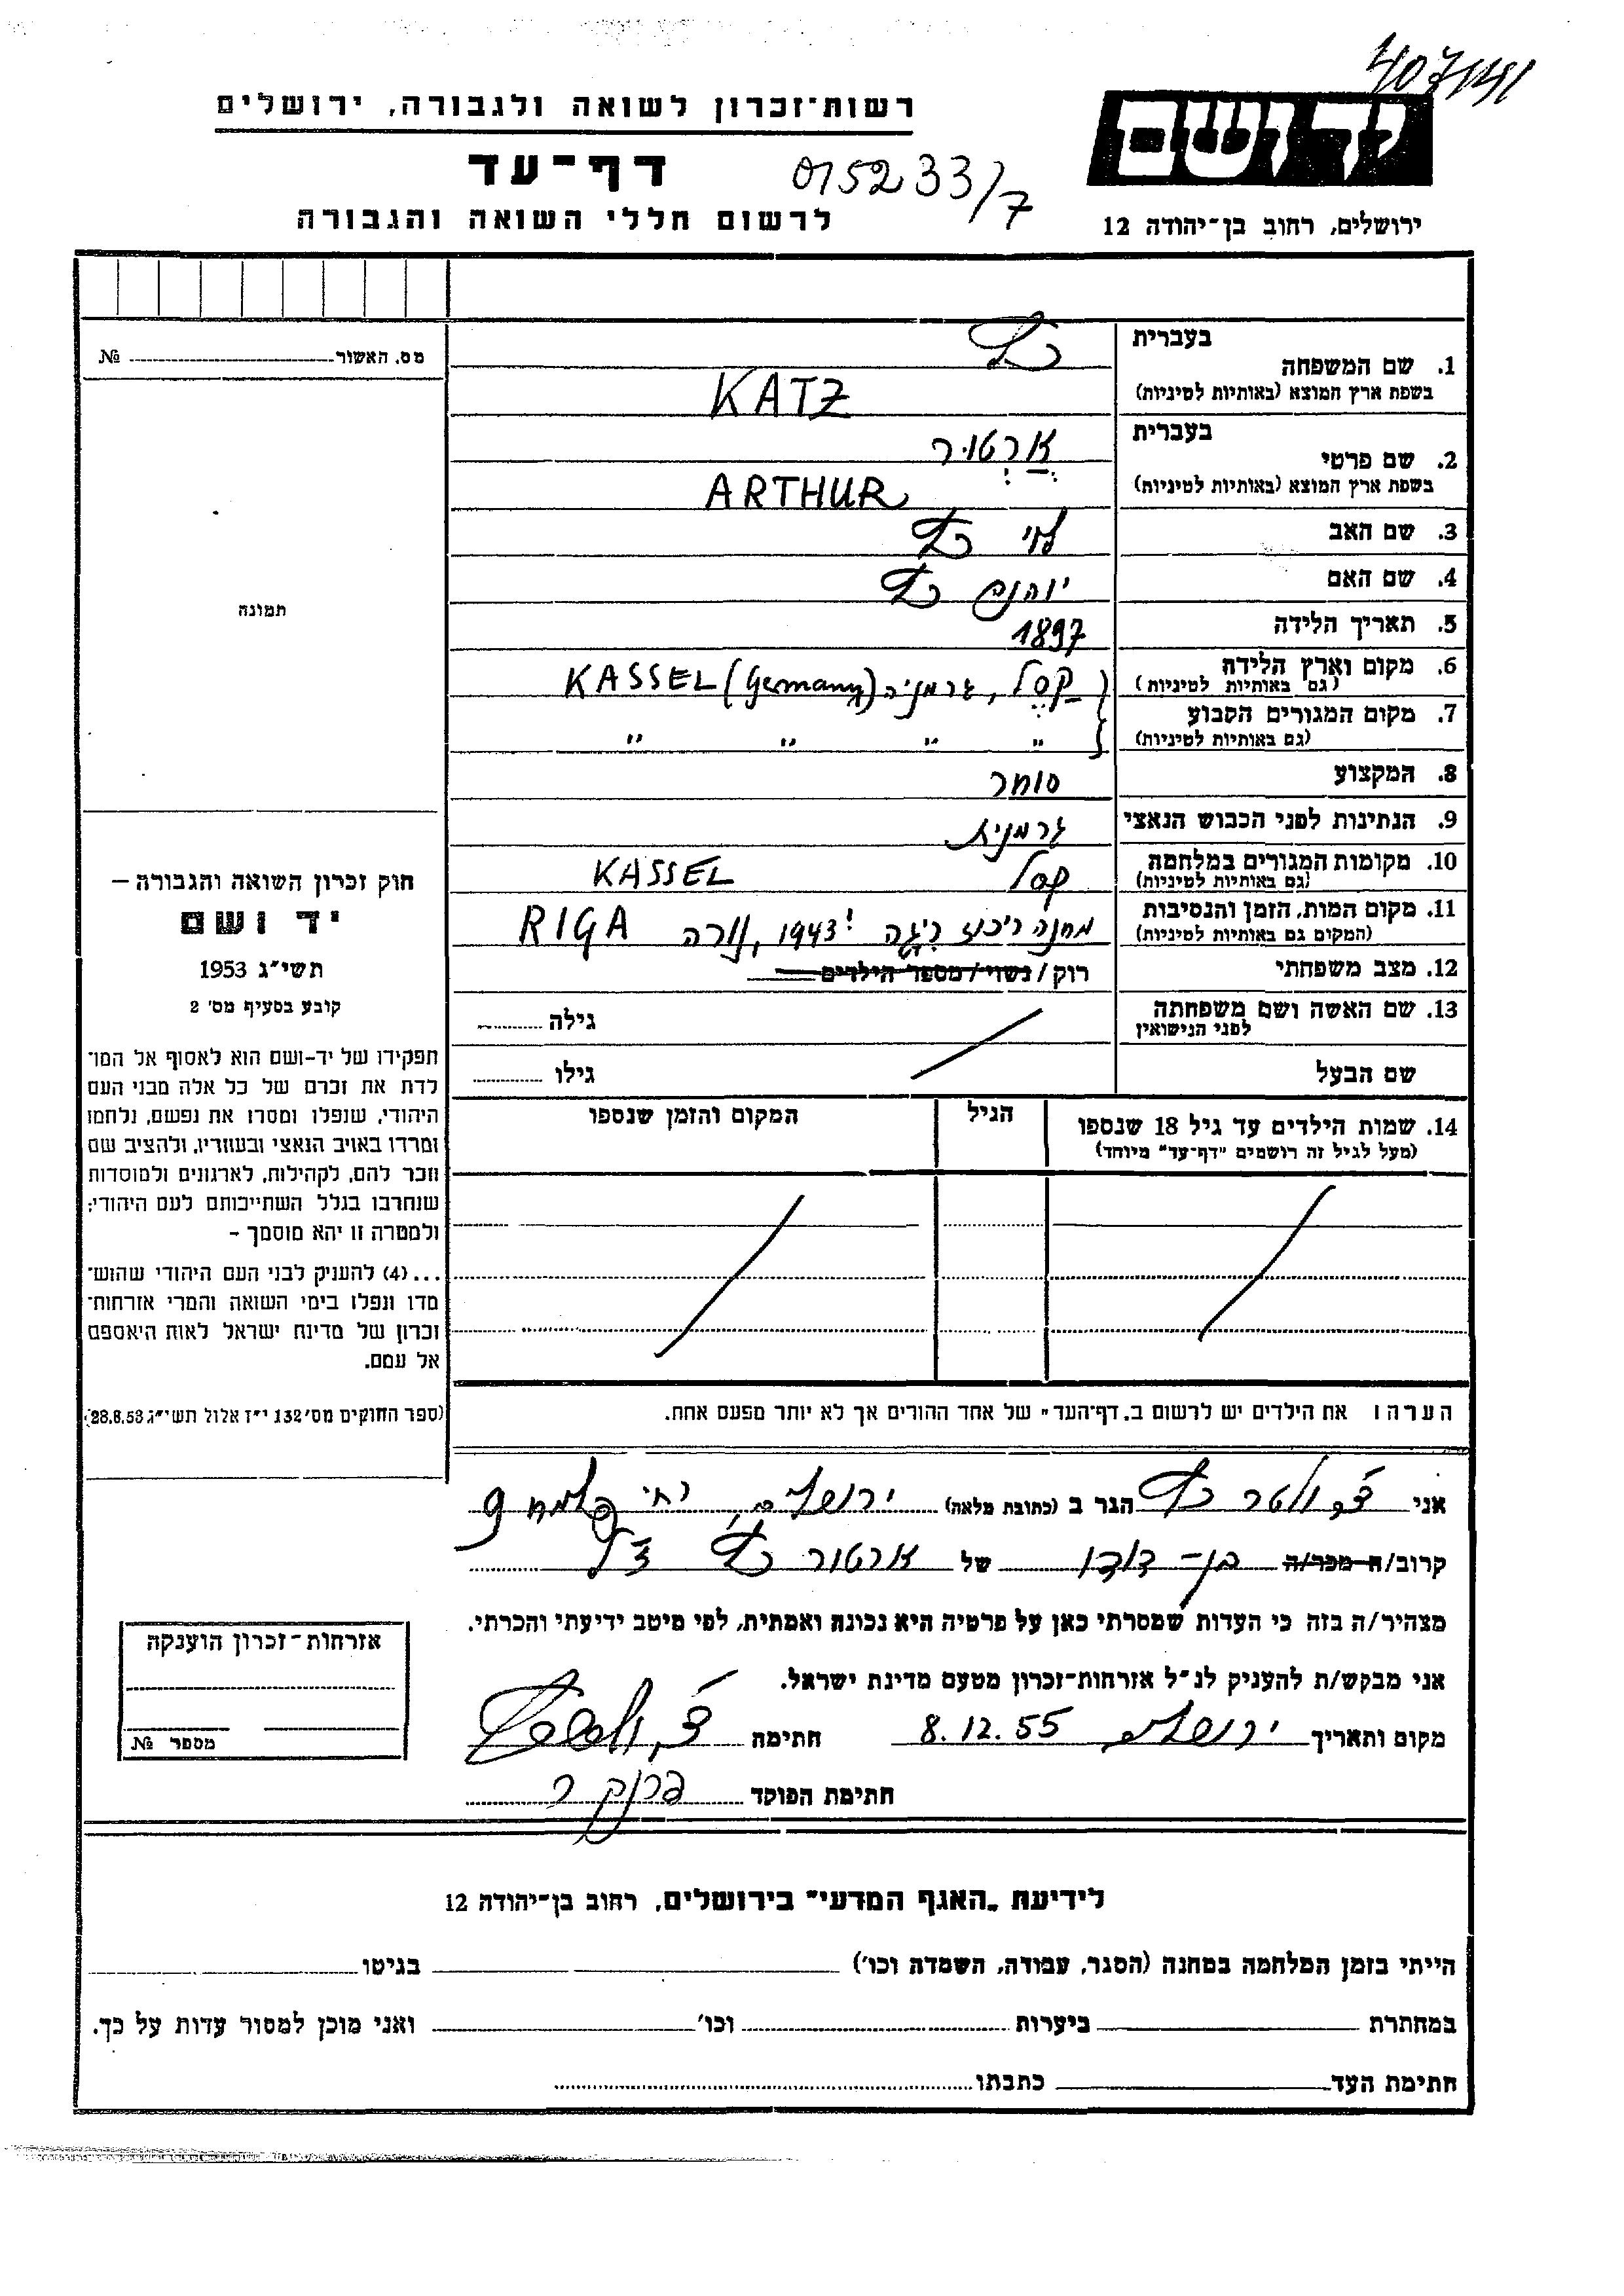 407/141
רשות־זכרון לשואה ולגבורה, ירושלים
יד ושם
דף־עד
0152 33/7
לרשום חללי השואה והגבורה
ירושלים, רחוב בן־יהודה 12
מס. האשור № 
בעברית כץ
1. שם המשפחה
בשפת ארץ המוצא (באותיות לטיניות) KATZ
בעברית ארטור
2. שם פרטי
בשפת ארץ המוצא (באותיות לטיניות) ARTHUR
3. שם האב לוי כץ
4. שם האם יוהנה כץ
תמונה
5. תאריך הלידה 1897
6. מקום וארץ הלידה קסל, גרמניה KASSEL (Germany)
(גם באותיות לטיניות)
7. מקום המגורים הקבוע " " " "
(גם באותיות לטיניות)
8. המקצוע סוחר
9. הנתינות לפני הכבוש הנאצי גרמנית
10. מקומות המגורים במלחמה קסל KASSEL
(גם באותיות לטיניות)
11. מקום המות, הזמן והנסיבות מחנה ריכוז ריגה 1943, נורה RIGA
(המקום גם באותיות לטיניות)
12. מצב משפחתי רוק/נשוי/מספר הילדים
13. שם האשה ושם משפחתה גילה
לפני הנישואין
שם הבעל גילו
14. שמות הילדים עד גיל 18 שנספו הגיל המקום והזמן שנספו
(מעל לגיל זה רושמים "דף־עד" מיוחד)
הערה: את הילדים יש לרשום ב„דף־העד" של אחד ההורים אך לא יותר מפעם אחת.
חוק זכרון השואה והגבורה –
יד ושם
תשי"ג 1953
קובע בסעיף מס' 2
תפקידו של יד-ושם הוא לאסוף אל המו־
לדת את זכרם של כל אלה מבני העם
היהודי, שנפלו ומסרו את נפשם, נלחמו
ומרדו באויב הנאצי ובעוזריו, ולהציב שם
וזכר להם, לקהילות, לארגונים ולמוסדות
שנחרבו בגלל השתייכותם לעם היהודי;
ולמטרה זו יהא מוסמך –
...(4) להעניק לבני העם היהודי שהוש־
מדו ונפלו בימי השואה והמרי אזרחות־
זכרון של מדינת ישראל לאות היאספם
אל עמם.
(ספר החוקים מס' 132 י"ז אלול תשי"ג 28.8.53)
אני ולטר כץ הגר ב (כתובת מלאה) ירושלים, רח' פלמח 9
קרוב/ה מכר/ה בן-דודו של ארטור כץ ז"ל
מצהיר/ה בזה כי העדות שמסרתי כאן על פרטיה היא נכונה ואמתית, לפי מיטב ידיעתי והכרתי.
אני מבקש/ת להעניק לנ"ל אזרחות־זכרון מטעם מדינת ישראל.
מקום ותאריך ירושלים 8.12.55 חתימה
חתימת הפוקד
אזרחות־זכרון הוענקה
מספר №
לידיעת „האגף המדעי" בירושלים, רחוב בן־יהודה 12
הייתי בזמן המלחמה במחנה (הסגר, עבודה, השמדה וכו') בגיטו
במחתרת ביערות וכו' ואני מוכן למסור עדות על כך.
חתימת העד כתבתו